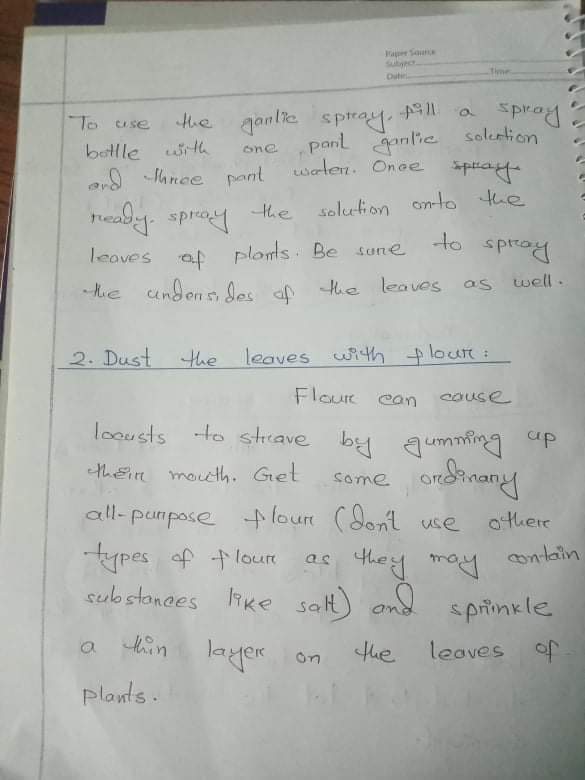 Paper Source
Subject
Date: Time:
To use the garlic spray, fill a spray
bottle with one part garlic solution
and three part water. Once spray
ready. spray the solution onto the
leaves of plants. Be sure to spray
the undersides of the leaves as well.
2. Dust the leaves with flour:
Flour can cause
locusts to strave by gumming up
their mouth. Get some ordinary
all-purpose flour (don't use other
types of flour as they may contain
substances like salt) and sprinkle
a thin layer on the leaves of
plants.